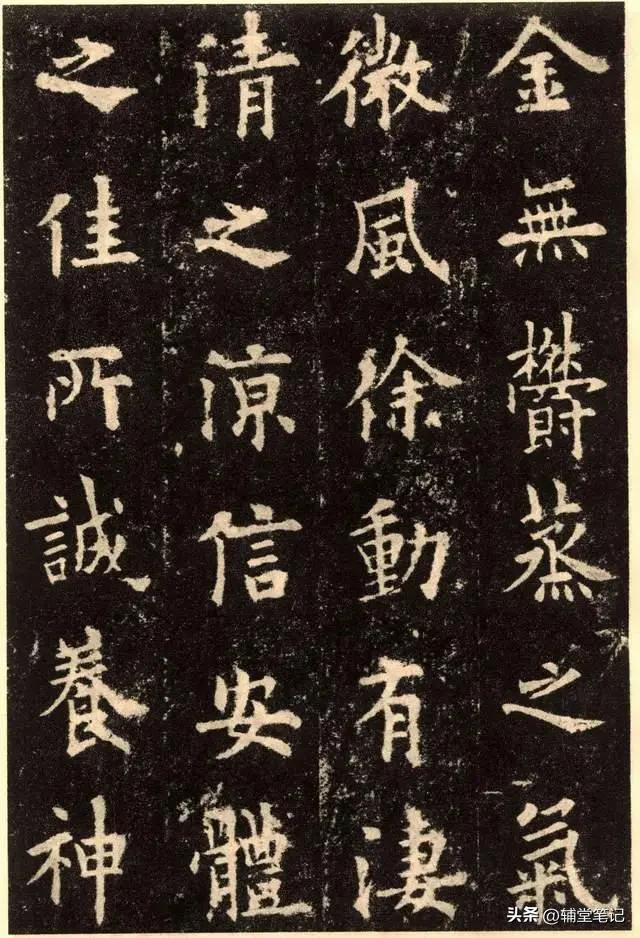 金無欝蒸之氣
微風徐動有淒
清之涼信安體
之佳所誠養神
头条@辅堂笔记